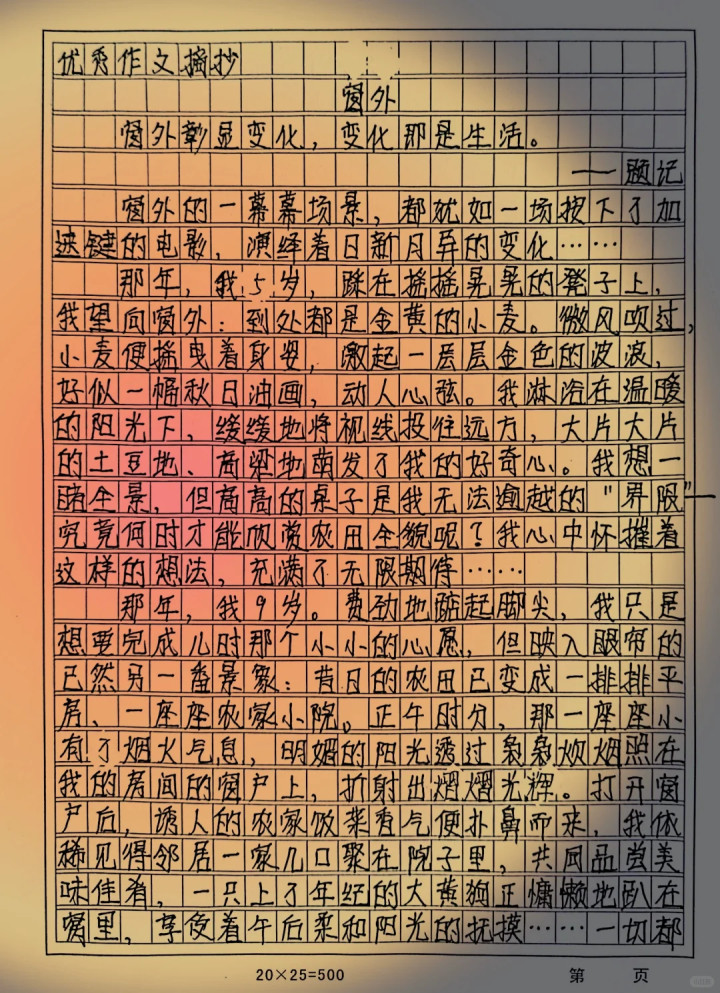 优秀作文摘抄
窗外
窗外彰显变化，变化那是生活。
——题记
窗外的一幕幕场景，都犹如一场按下了加
速键的电影，演绎着日新月异的变化……
那年，我5岁，踩在摇摇晃晃的凳子上，
我望向窗外：到处都是金黄的小麦。微风吹过，
小麦便摇曳着身姿，激起一层层金色的波浪，
好似一幅秋日油画，动人心弦。我淋浴在温暖
的阳光下，缓缓地将视线投往远方，大片大片
的土豆地、高粱地萌发了我的好奇心。我想一
睹全景，但高高的桌子是我无法逾越的“界限”—
究竟何时才能欣赏农田全貌呢？我心中怀揣着
这样的想法，充满了无限期待……
那年，我9岁。费劲地踮起脚尖，我只是
想要完成儿时那个小小的心愿，但映入眼帘的
已然另一番景象：昔日的农田已变成一排排平
房、一座座农家小院。正午时分，那一座座小
有了烟火气息，明媚的阳光透过袅袅炊烟照在
我的房间的窗户上，折射出熠熠光辉。打开窗
户后，诱人的农家饭菜香气便扑鼻而来，我依
稀见得邻居一家几口聚在院子里，共同品尝美
味佳肴，一只上了年纪的大黄狗正慵懒地趴在
窝里，享受着午后柔和阳光的抚摸……一切都
20×25=500
第 页